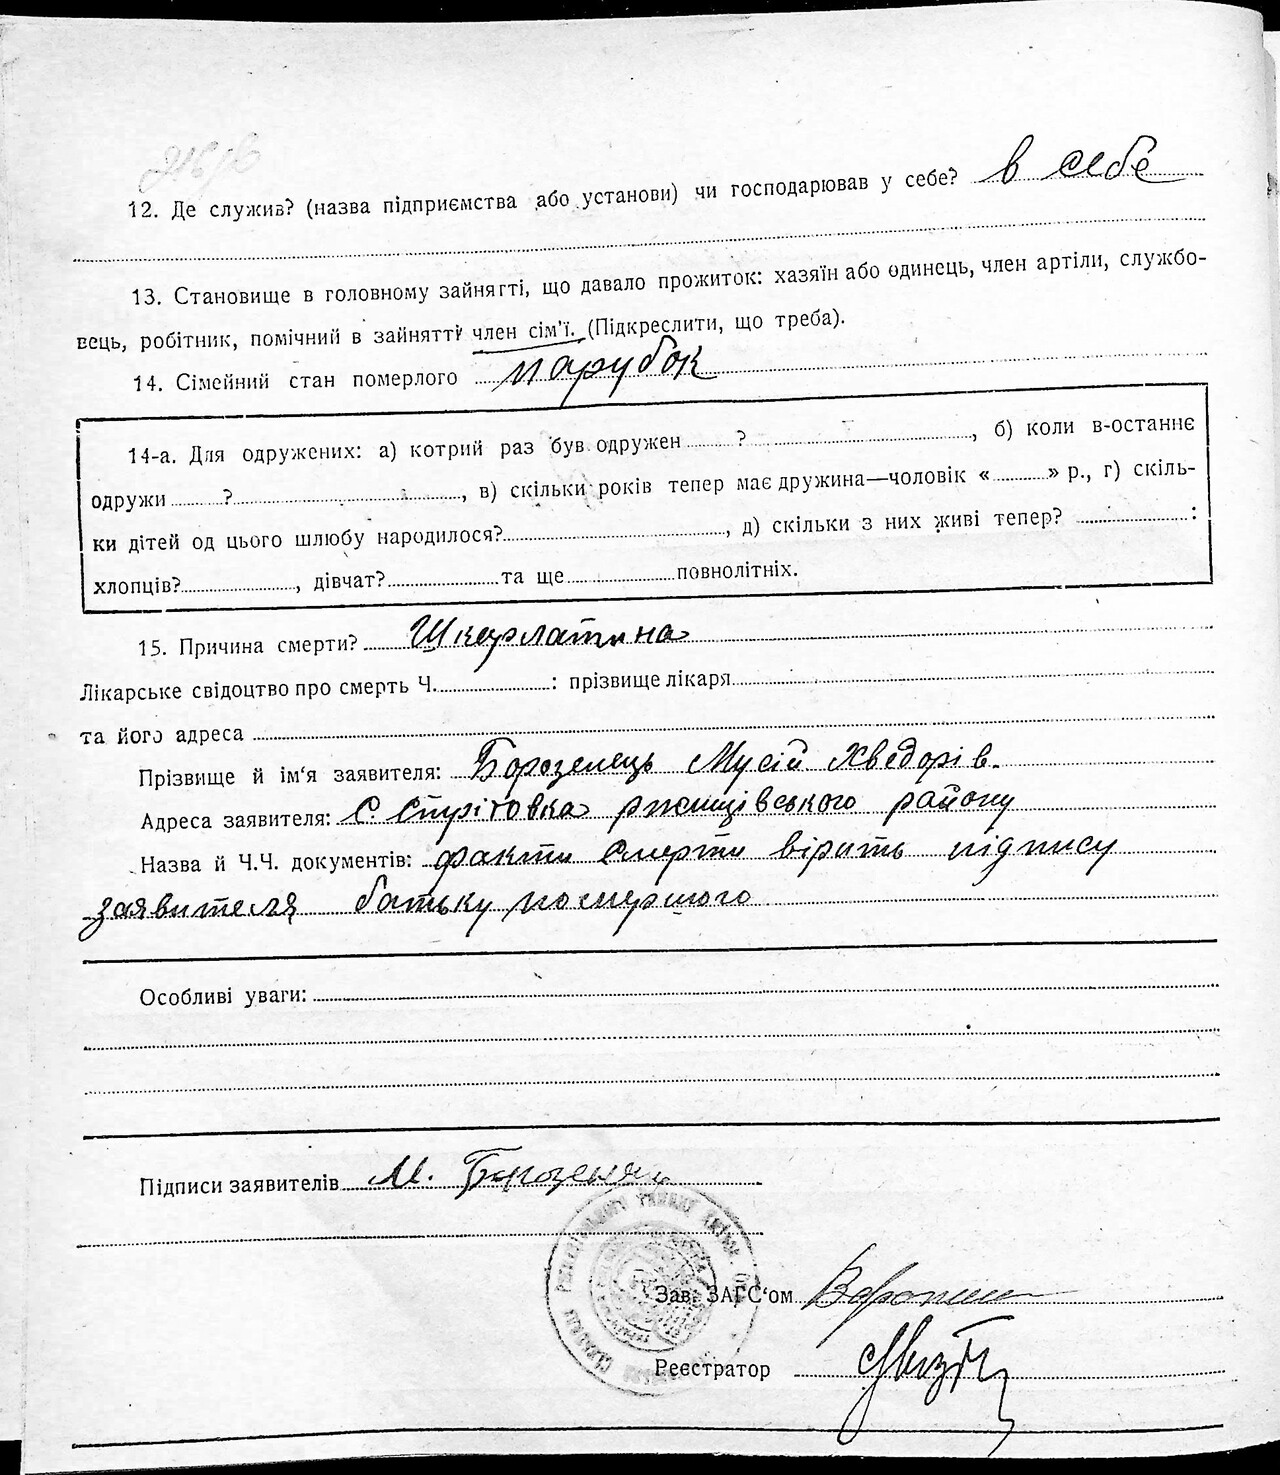 12. Де служив? (назва підприємства або установи) чи господарював у себе? в себе
13. Становище в головному зайнятті, що давало прожиток: хазяїн або одинець, член артіли, службо-
вець, робітник, помічний в зайнятті член сім'ї. (Підкреслити, що треба).
14. Сімейний стан померлого парубок
14-а. Для одружених: а) котрий раз був одружен ? , б) коли в-останнє
одружи ? , в) скільки років тепер має дружина—чоловік « » р., г) скіль-
ки дітей од цього шлюбу народилося? , д) скільки з них живі тепер? :
хлопців? , дівчат? та ще повнолітніх.
15. Причина смерти? Шкерлатина
Лікарське свідоцтво про смерть Ч. : прізвище лікаря
та його адреса
Прізвище й ім'я заявителя: Борозенець Мусій Хведорів.
Адреса заявителя: С. Стрітовка ржищівського району
Назва й Ч.Ч. документів: факти смерти вірить підпису
заявителя батьку помершого
Особливі уваги:
Підписи заявителів М.
Зав. ЗАГС'ом
Реєстратор